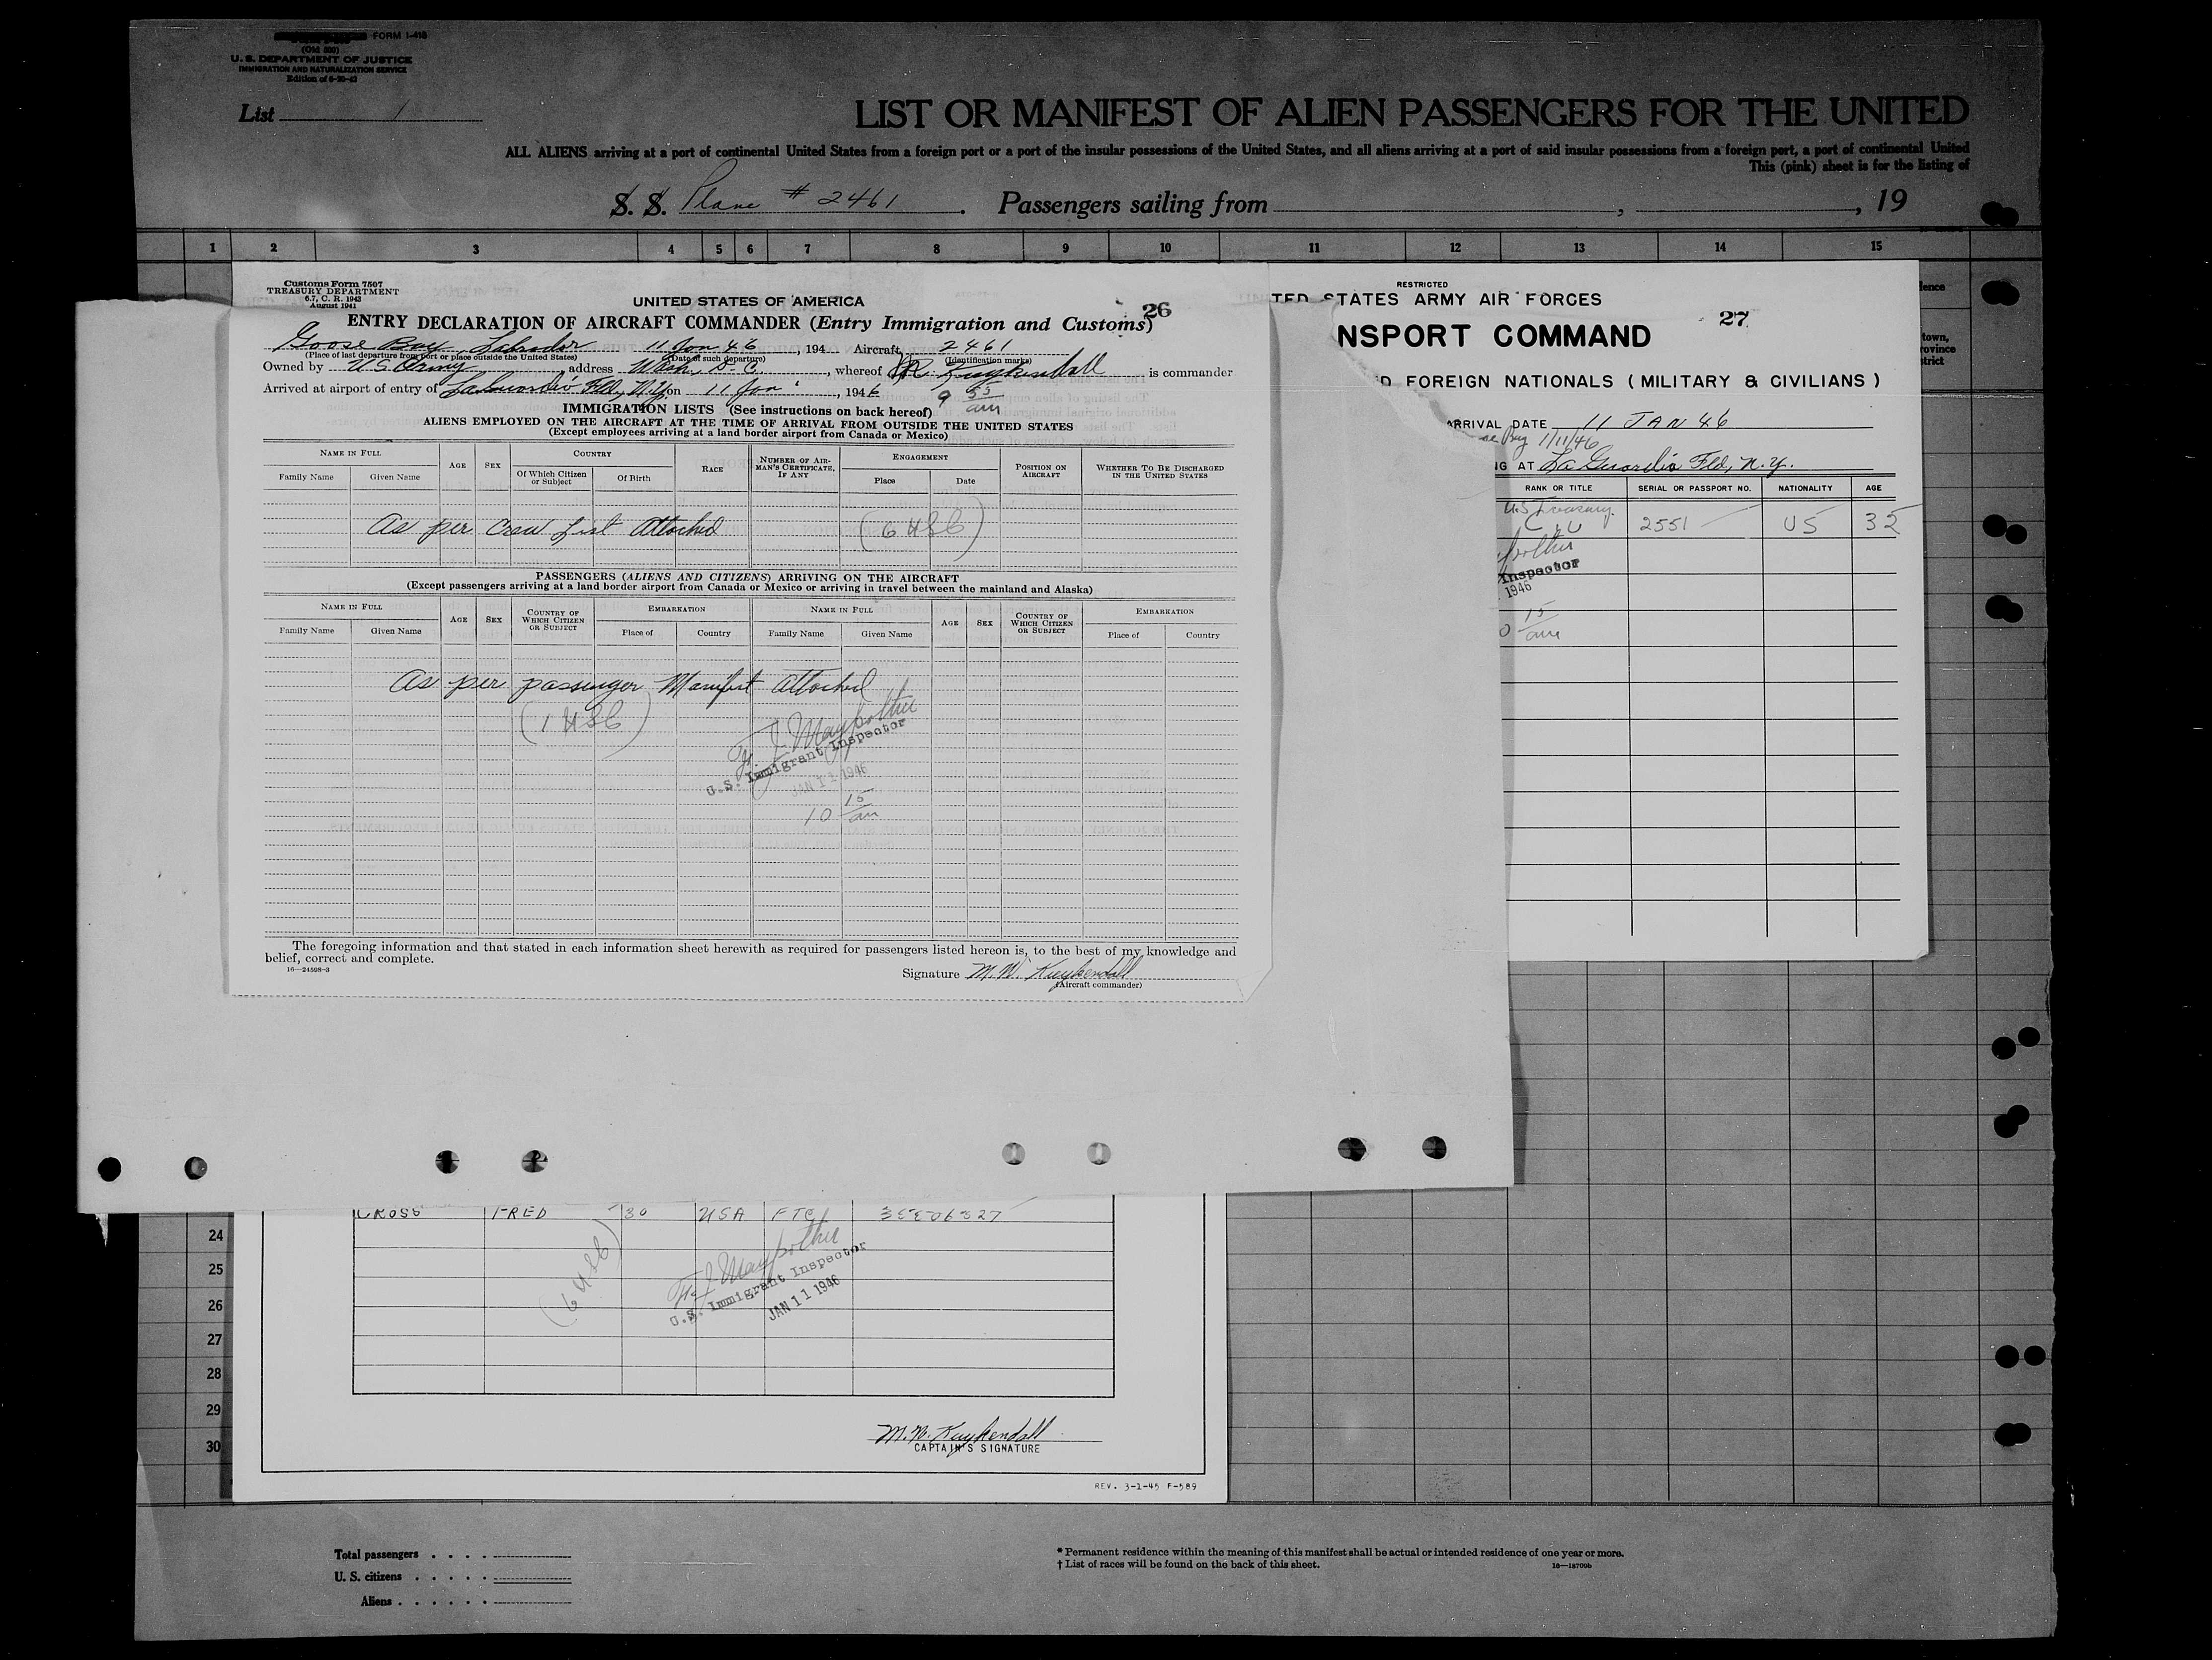 FORM I-415
(Old 500)
U. S. DEPARTMENT OF JUSTICE
IMMIGRATION AND NATURALIZATION SERVICE
List 1
LIST OR MANIFEST OF ALIEN PASSENGERS FOR THE UNITED
ALL ALIENS arriving at a port of continental United States from a foreign port or a port of the insular possessions of the United States, and all aliens arriving at a port of said insular possessions from a foreign port, a port of continental United
This (pink) sheet is for the listing of
S. S. Plane # 2461. Passengers sailing from , , 19
1 2 3 4 5 6 7 8 9 10 11 12 13 14 15
Customs Form 7507
TREASURY DEPARTMENT
6.7, C. R. 1943
August 1941
UNITED STATES OF AMERICA
26
ENTRY DECLARATION OF AIRCRAFT COMMANDER (Entry Immigration and Customs)
Goose Bay, Labrador 11 Jan 46, 194 Aircraft 2461
(Place of last departure from port or place outside the United States) (Date of such departure) (Identification marks)
Owned by U.S. Army address Wash, D.C., whereof Kuykendall is commander
Arrived at airport of entry of LaGuardia Fld, N.Y. on 11 Jan, 1946 9 55 am
IMMIGRATION LISTS (See instructions on back hereof)
ALIENS EMPLOYED ON THE AIRCRAFT AT THE TIME OF ARRIVAL FROM OUTSIDE THE UNITED STATES
(Except employees arriving at a land border airport from Canada or Mexico)
NAME IN FULL AGE SEX COUNTRY RACE NUMBER OF AIRMAN'S CERTIFICATE, IF ANY ENGAGEMENT POSITION ON AIRCRAFT WHETHER TO BE DISCHARGED IN THE UNITED STATES
Family Name Given Name Of Which Citizen or Subject Of Birth Place Date
As per Crew List Attached (6 USC)
PASSENGERS (ALIENS AND CITIZENS) ARRIVING ON THE AIRCRAFT
(Except passengers arriving at a land border airport from Canada or Mexico or arriving in travel between the mainland and Alaska)
NAME IN FULL AGE SEX COUNTRY OF WHICH CITIZEN OR SUBJECT EMBARKATION NAME IN FULL AGE SEX COUNTRY OF WHICH CITIZEN OR SUBJECT EMBARKATION
Family Name Given Name Place of Country Family Name Given Name Place of Country
As per passenger Manifest attached
(1 USC)
U.S. Immigrant Inspector
JAN 11 1946
10 15 am
The foregoing information and that stated in each information sheet herewith as required for passengers listed hereon is, to the best of my knowledge and
belief, correct and complete.
16—24598-3
Signature M.W. Kuykendall
(Aircraft commander)
RESTRICTED
TED STATES ARMY AIR FORCES
27
NSPORT COMMAND
D FOREIGN NATIONALS (MILITARY & CIVILIANS)
ARRIVAL DATE 11 JAN 46
Bay 1/11/46
G AT La Guardia Fld, N.Y.
RANK OR TITLE SERIAL OR PASSPORT NO. NATIONALITY AGE
U.S Treasury
2551 US 32
Inspector
1946
15
am
lence
town,
rovince
strict
CROSS FRED 30 USA FTC
(6 USC)
U.S. Immigrant Inspector
JAN 11 1946
24
25
26
27
28
29
30
M.W. Kuykendall
CAPTAIN'S SIGNATURE
REV. 3-1-45 F-589
Total passengers
U. S. citizens
Aliens
* Permanent residence within the meaning of this manifest shall be actual or intended residence of one year or more.
† List of races will be found on the back of this sheet.